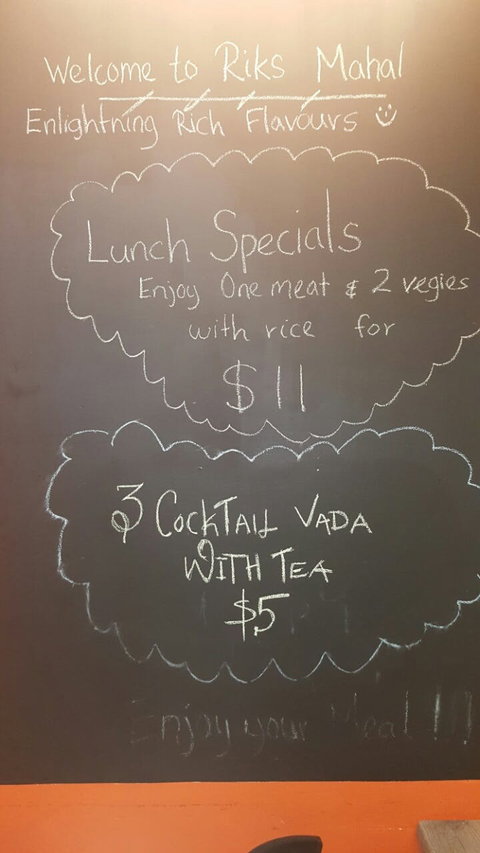 Welcome to Riks Mahal
Enlightning Rich Flavours
Lunch Specials
Enjoy One meat & 2 vegies
with rice for
$11
3 COCKTAIL VADA
WITH TEA
$5
Enjoy your Meal!!!